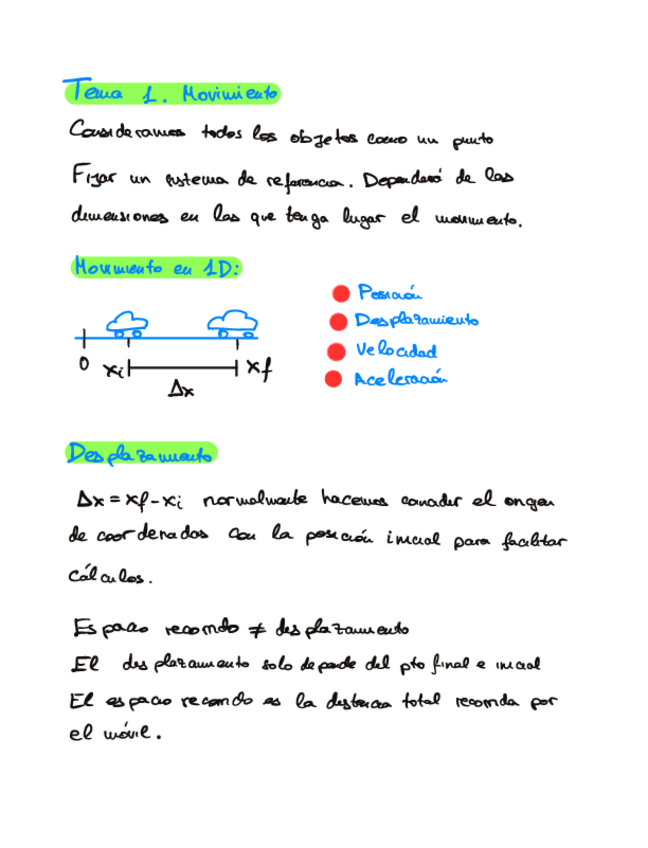 Tema 1. Movimiento
Consideramos todos los objetos como un punto
Fijar un sistema de referencia. Dependerá de las
dimensiones en las que tenga lugar el movimiento.
Movimiento en 1D:
Posición
Desplazamiento
Velocidad
Aceleración
0 xi xf
Δx
Desplazamiento
Δx = xf - xi normalmente hacemos coincidir el origen
de coordenadas con la posición inicial para facilitar
cálculos.
Espacio recorrido ≠ desplazamiento
El desplazamiento solo depende del pto final e inicial
El espacio recorrido es la distancia total recorrida por
el móvil.